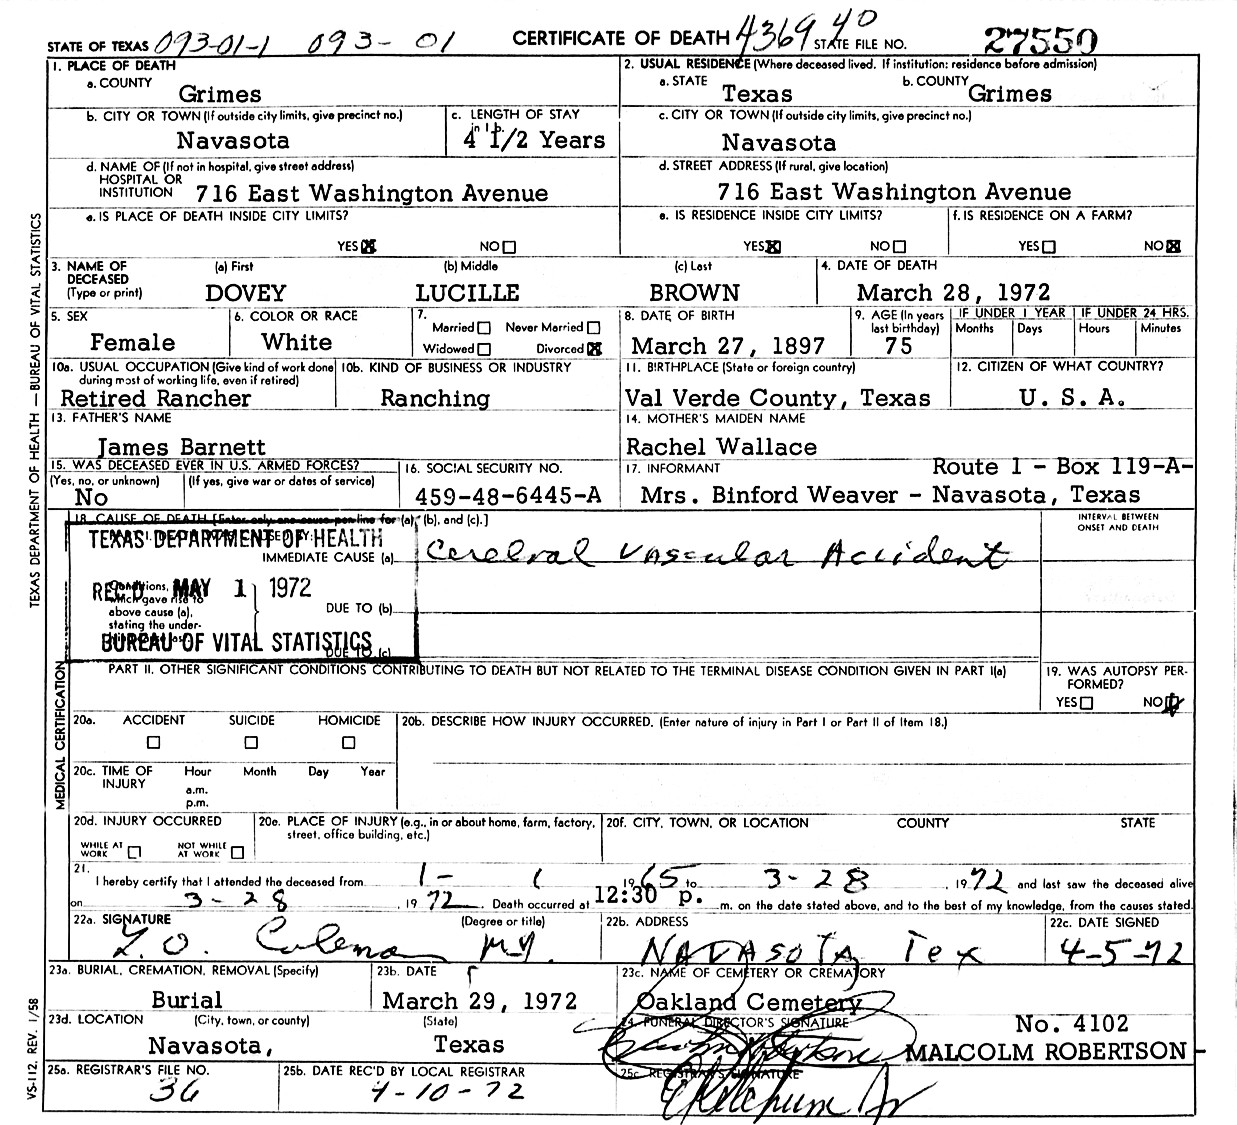 STATE OF TEXAS 093-01-1 093-01 CERTIFICATE OF DEATH 436940 STATE FILE NO. 27550
1. PLACE OF DEATH
a. COUNTY
Grimes
2. USUAL RESIDENCE (Where deceased lived. If institution: residence before admission)
a. STATE b. COUNTY
Texas Grimes
b. CITY OR TOWN (If outside city limits, give precinct no.) c. LENGTH OF STAY
Navasota 4 1/2 Years
c. CITY OR TOWN (If outside city limits, give precinct no.)
Navasota
d. NAME OF (If not in hospital, give street address)
HOSPITAL OR
INSTITUTION 716 East Washington Avenue
d. STREET ADDRESS (If rural, give location)
716 East Washington Avenue
e. IS PLACE OF DEATH INSIDE CITY LIMITS?
YES NO
e. IS RESIDENCE INSIDE CITY LIMITS? f. IS RESIDENCE ON A FARM?
YES NO YES NO
3. NAME OF (a) First (b) Middle (c) Last 4. DATE OF DEATH
DECEASED
(Type or print) DOVEY LUCILLE BROWN March 28, 1972
5. SEX 6. COLOR OR RACE 7. 8. DATE OF BIRTH 9. AGE (In years last birthday) IF UNDER 1 YEAR IF UNDER 24 HRS.
Married Never Married Months Days Hours Minutes
Female White Widowed Divorced March 27, 1897 75
10a. USUAL OCCUPATION (Give kind of work done during most of working life, even if retired) 10b. KIND OF BUSINESS OR INDUSTRY 11. BIRTHPLACE (State or foreign country) 12. CITIZEN OF WHAT COUNTRY?
Retired Rancher Ranching Val Verde County, Texas U. S. A.
13. FATHER'S NAME 14. MOTHER'S MAIDEN NAME
James Barnett Rachel Wallace
15. WAS DECEASED EVER IN U.S. ARMED FORCES? 16. SOCIAL SECURITY NO. 17. INFORMANT Route 1 - Box 119-A-
(Yes, no, or unknown) (If yes, give war or dates of service)
No 459-48-6445-A Mrs. Binford Weaver - Navasota, Texas
18. CAUSE OF DEATH [Enter only one cause per line for (a), (b), and (c).] INTERVAL BETWEEN
ONSET AND DEATH
TEXAS DEPARTMENT OF HEALTH
IMMEDIATE CAUSE (a) Cerebral Vascular Accident
REC'D MAY 1 1972
Conditions,
which gave rise to
above cause (a),
stating the under-
DUE TO (b)
BUREAU OF VITAL STATISTICS
DUE TO (c)
PART II. OTHER SIGNIFICANT CONDITIONS CONTRIBUTING TO DEATH BUT NOT RELATED TO THE TERMINAL DISEASE CONDITION GIVEN IN PART I(a) 19. WAS AUTOPSY PER-
FORMED?
YES NO
20a. ACCIDENT SUICIDE HOMICIDE 20b. DESCRIBE HOW INJURY OCCURRED. (Enter nature of injury in Part I or Part II of Item 18.)
20c. TIME OF Hour Month Day Year
INJURY a.m.
p.m.
20d. INJURY OCCURRED 20e. PLACE OF INJURY (e.g., in or about home, farm, factory, street, office building, etc.) 20f. CITY, TOWN, OR LOCATION COUNTY STATE
WHILE AT WORK NOT WHILE AT WORK
21.
I hereby certify that I attended the deceased from 1- 1 1965 to 3-28, 1972 and last saw the deceased alive
on 3-28 1972. Death occurred at 12:30 p. m. on the date stated above, and to the best of my knowledge, from the causes stated.
22a. SIGNATURE (Degree or title) 22b. ADDRESS 22c. DATE SIGNED
NAVASOTA Tex 4-5-72
23a. BURIAL, CREMATION, REMOVAL (Specify) 23b. DATE 23c. NAME OF CEMETERY OR CREMATORY
Burial March 29, 1972 Oakland Cemetery
23d. LOCATION (City, town, or county) (State) 24. FUNERAL DIRECTOR'S SIGNATURE No. 4102
Navasota, Texas MALCOLM ROBERTSON -
25a. REGISTRAR'S FILE NO. 25b. DATE REC'D BY LOCAL REGISTRAR 25c. REGISTRAR'S SIGNATURE
36 4-10-72
TEXAS DEPARTMENT OF HEALTH — BUREAU OF VITAL STATISTICS
MEDICAL CERTIFICATION
VS-112, REV. 1/58